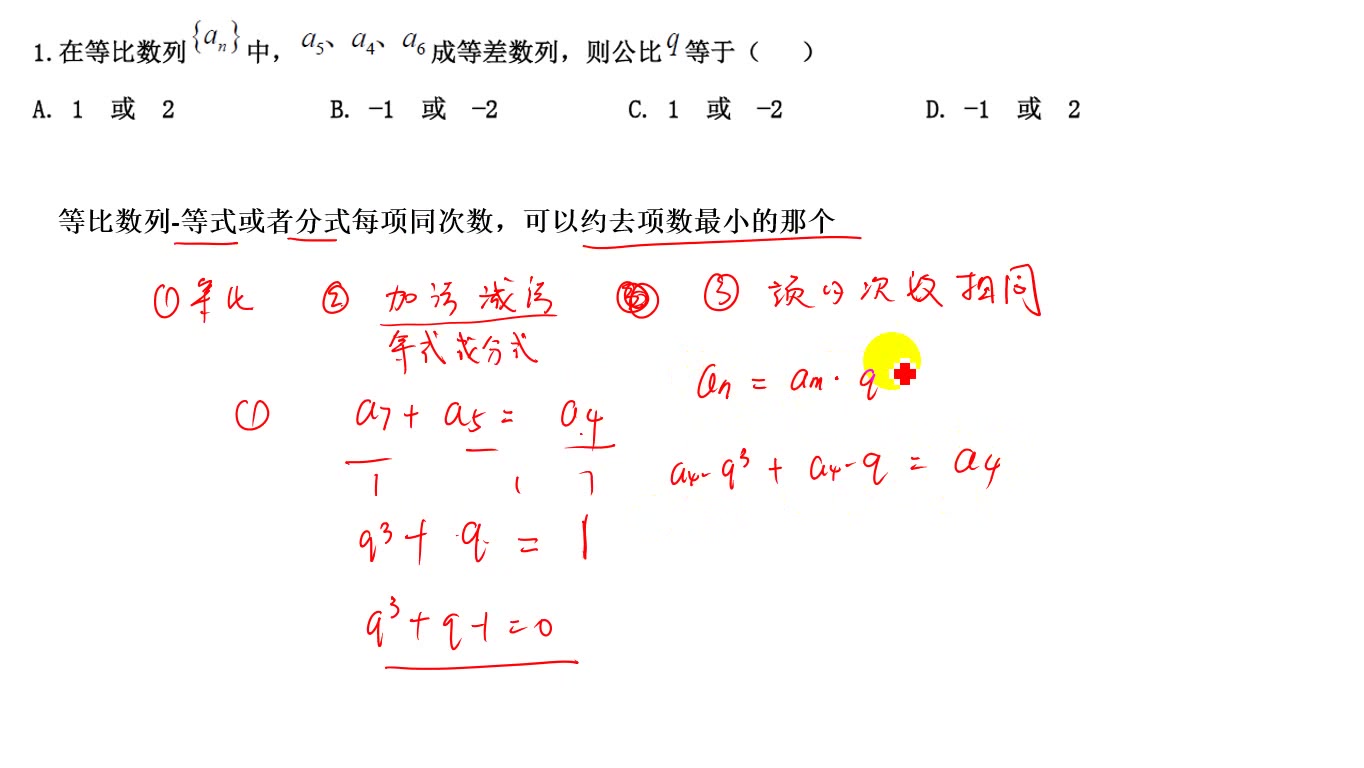 1.在等比数列{aₙ}中，a₅、a₄、a₆成等差数列，则公比q等于（ ）
A. 1 或 2 B. −1 或 −2 C. 1 或 −2 D. −1 或 2
等比数列-等式或者分式每项同次数，可以约去项数最小的那个
①等比 ② 加法减法 ③ 项的次数相同
等式或分式
aₙ = aₘ · q
① a₇ + a₅ = a₄
a₄·q³ + a₄·q = a₄
1 1 1
q³ + q = 1
q³ + q - 1 = 0